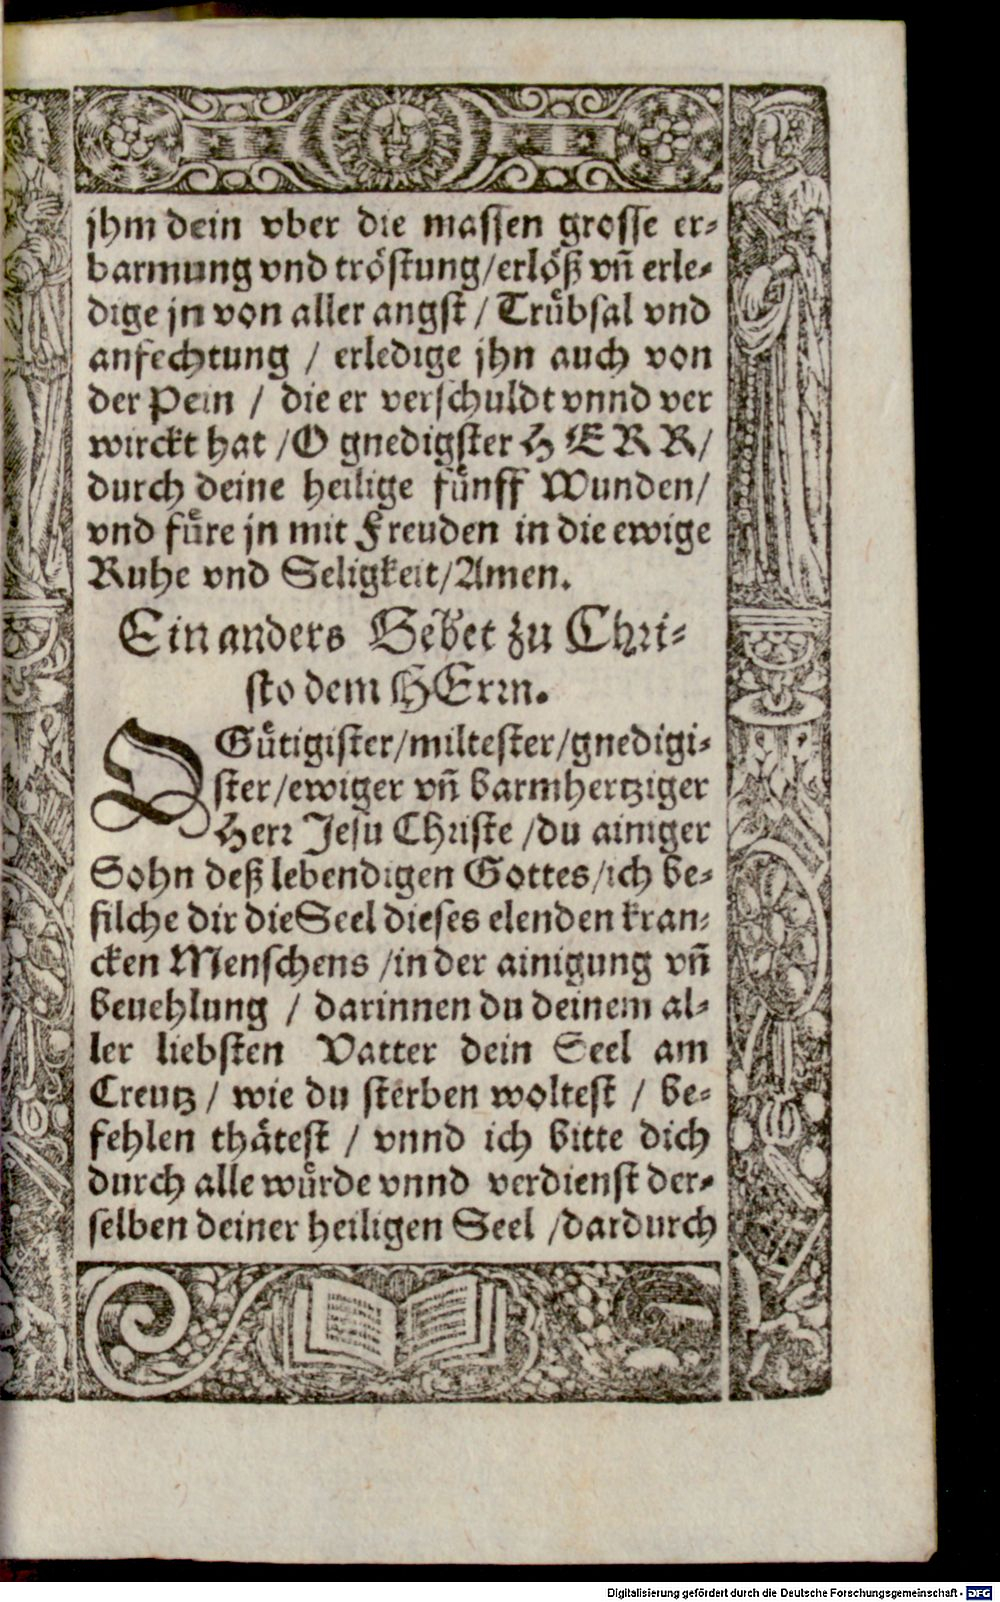 jhm dein vber die massen grosse er-
barmung vnd tröstung/erlöß vñ erle-
dige jn von aller angst / Trůbsal vnd
anfechtung / erledige jhn auch von
der Pein / die er verschuldt vnnd ver
wirckt hat /O gnedigster HERR/
durch deine heilige fůnff Wunden/
vnd fůre jn mit Freuden in die ewige
Ruhe vnd Seligkeit/Amen.
Ein anders Gebet zu Chri-
sto dem HErrn.
O Gůtigister/miltester/gnedigi-
ster/ewiger vñ barmhertziger
Herr Jesu Christe /du ainiger
Sohn deß lebendigen Gottes/ich be-
filche dir die Seel dieses elenden kran-
cken Menschens /in der ainigung vñ
beuehlung / darinnen du deinem al-
ler liebsten Vatter dein Seel am
Creutz / wie du sterben woltest / be-
fehlen thätest / vnnd ich bitte dich
durch alle wůrde vnnd verdienst der-
selben deiner heiligen Seel /dardurch
Digitalisierung gefördert durch die Deutsche Forschungsgemeinschaft - DFG